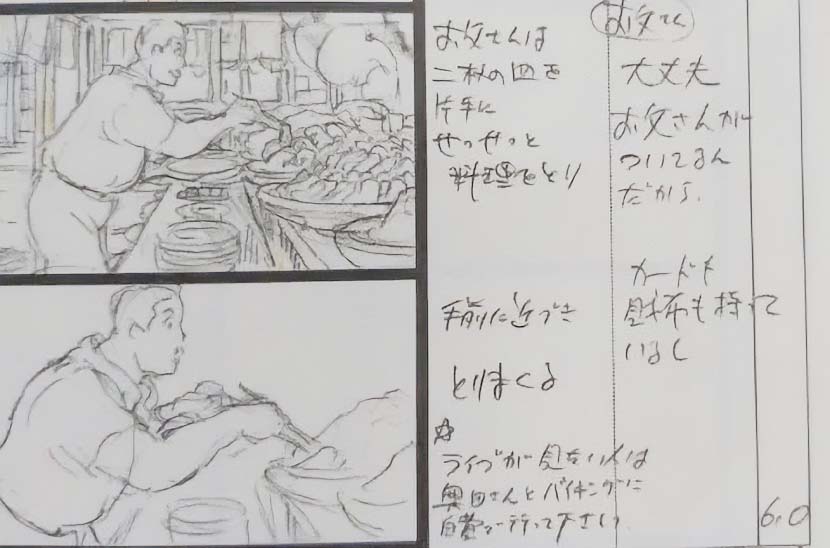 お父さんは
二枚の皿を
片手に
せっせっと
料理をとり
手前に近づき
とりまくる
☆
ライブが見たい人は
奥田さんとバイキングに
自費で行って下さい
お父さん
大丈夫
お父さんが
ついてるん
だから。
カードも
財布も持って
いるし
6.0